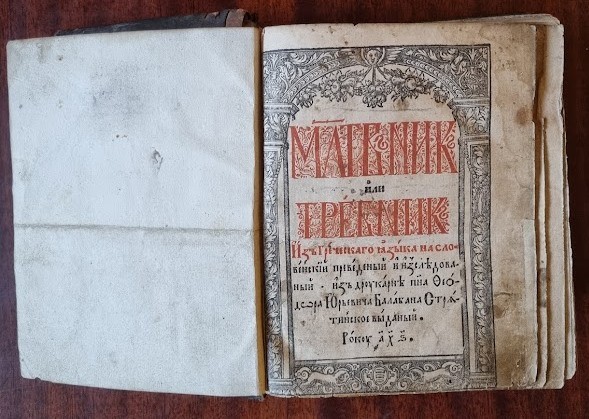 Мл҃твⷩ҇икъ
или
ТРЕ́БНИК
Изъ Грецкаго ꙗзы́ка на сло-
ве́нскїй преведе́ный и изслѣдова-
ный. изъ друка́рнѣ п҃на Ѳео́-
дѡра Ю҆рьевича Балаба́на Стрѧ-
тинское вы́даный.
Року ҂а҃ х҃ ѕ҃.